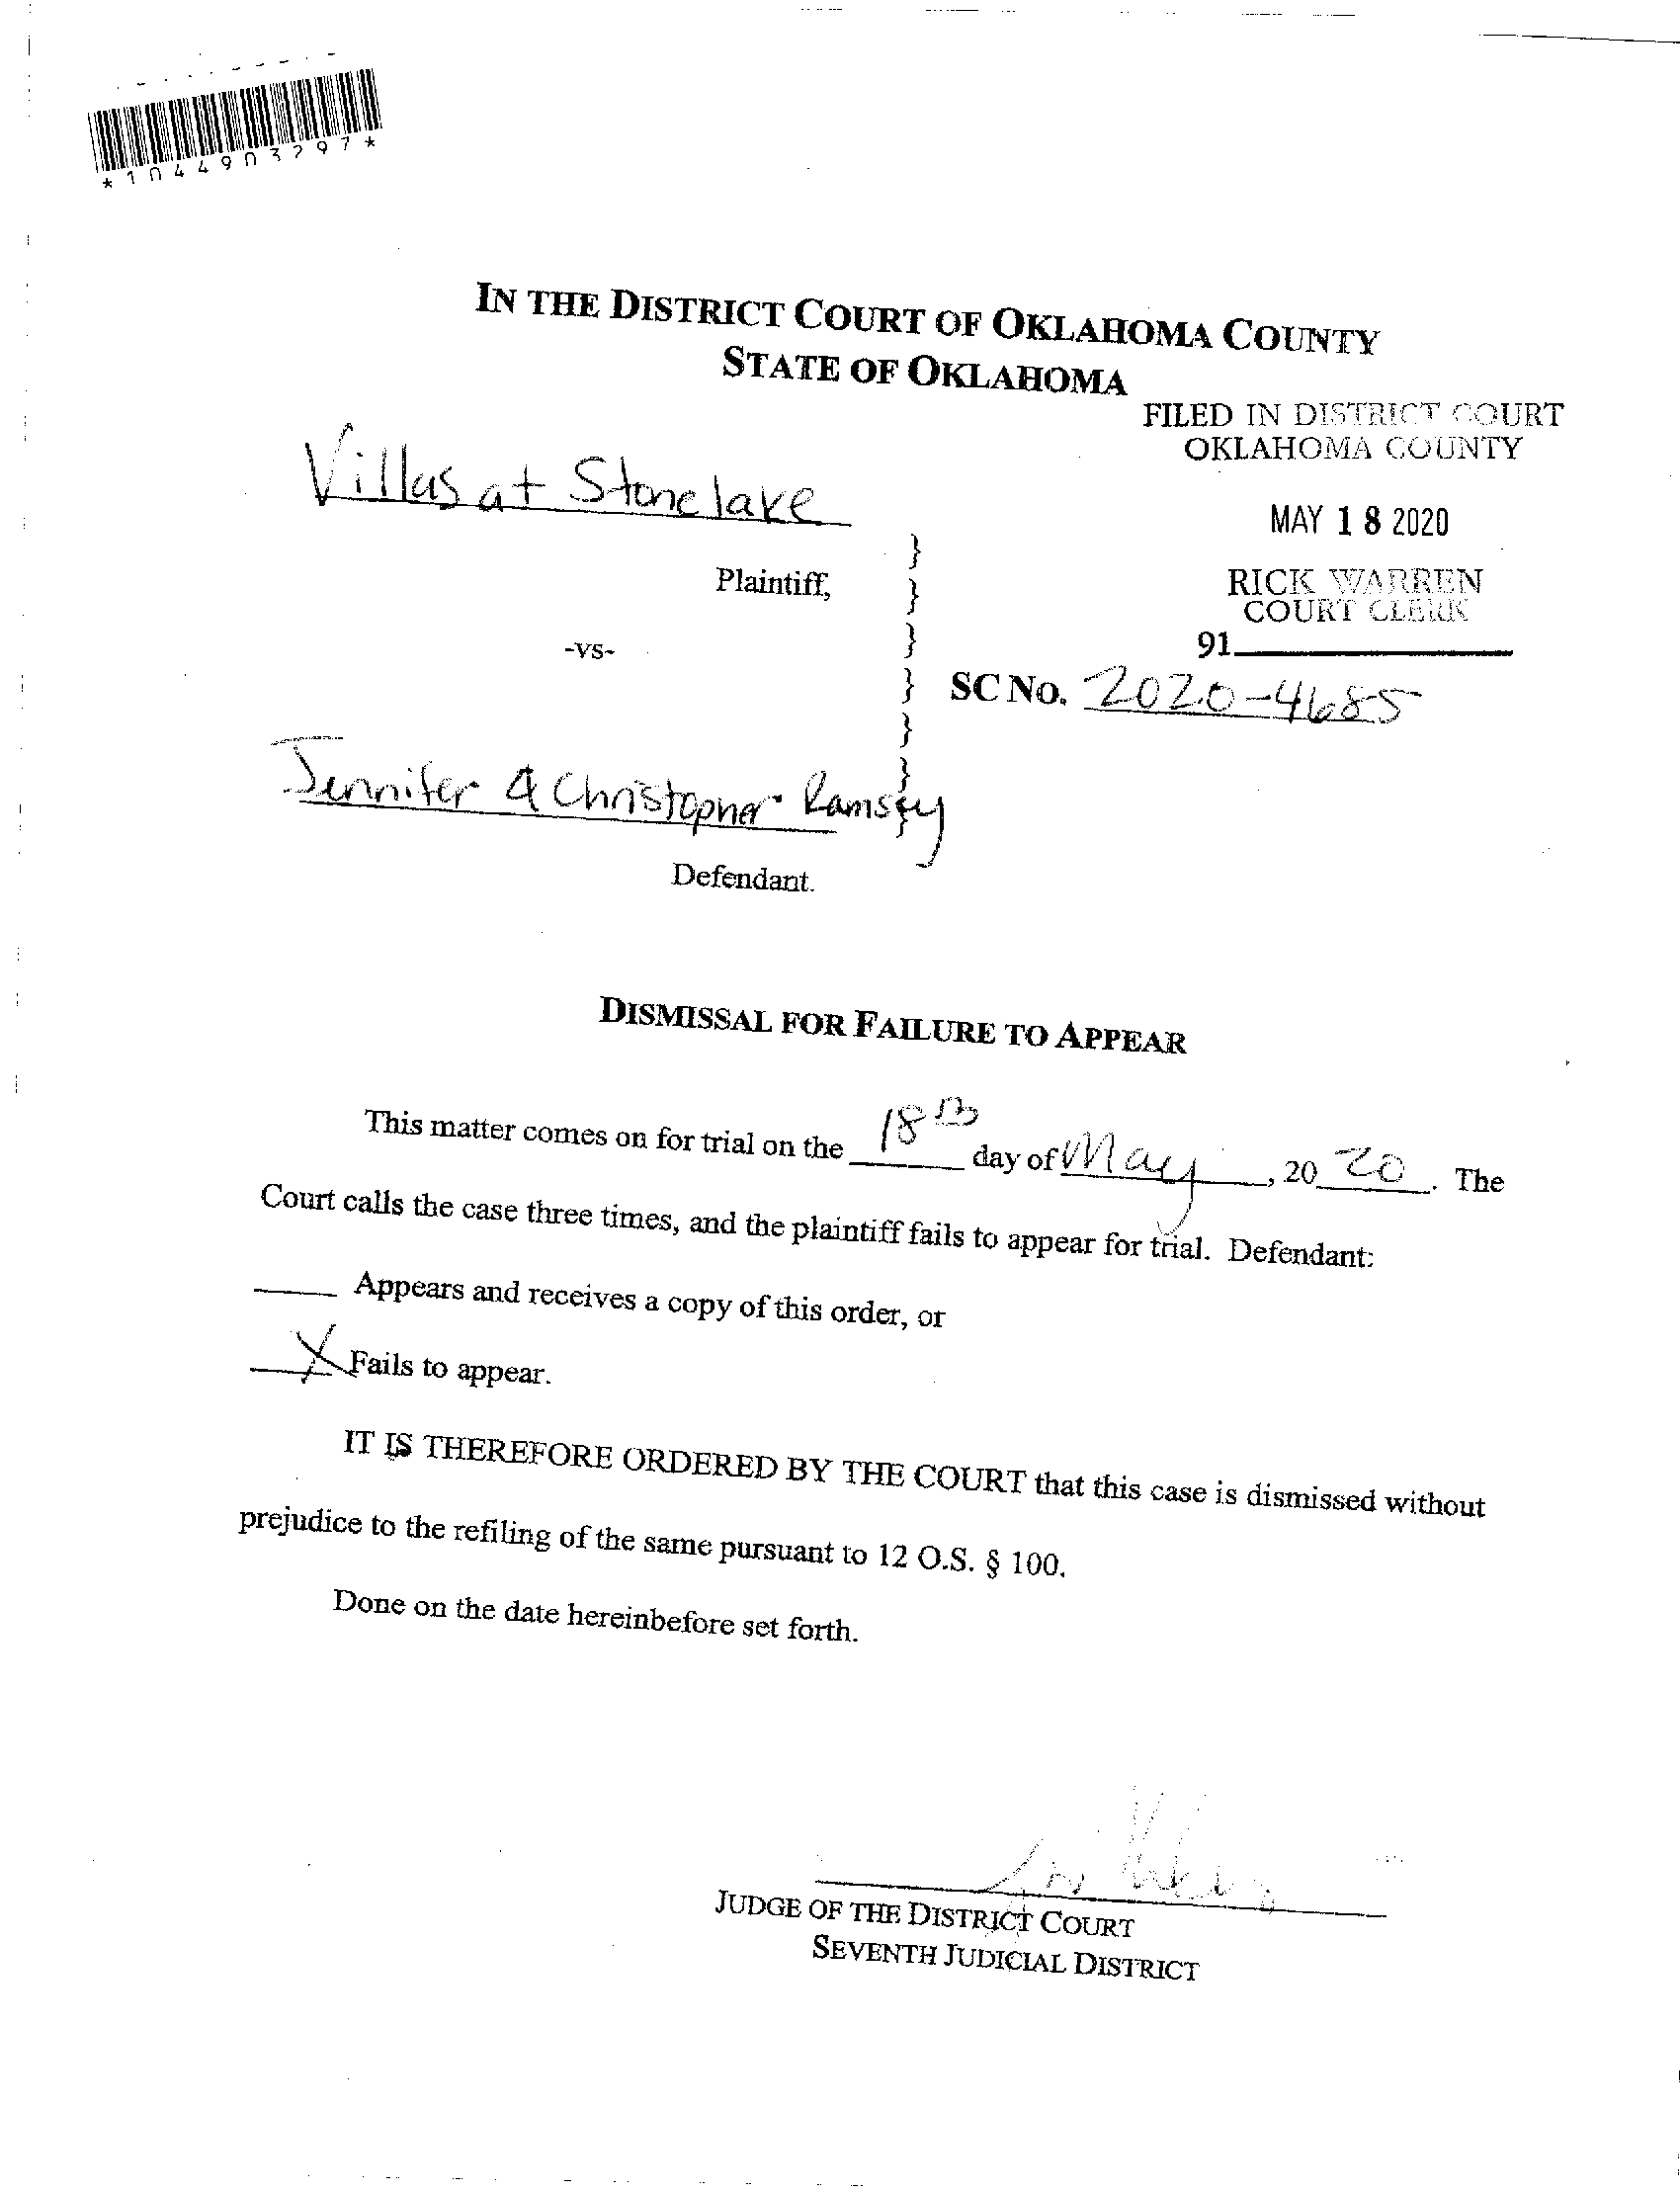 *1044903297*
IN THE DISTRICT COURT OF OKLAHOMA COUNTY
STATE OF OKLAHOMA
FILED IN DISTRICT COURT
OKLAHOMA COUNTY
Villas at Stonelake
MAY 18 2020
Plaintiff,
RICK WARREN
COURT CLERK
-vs-
91
SC NO. 2020-4685
Jennifer & Christopher Ramsey
Defendant.
DISMISSAL FOR FAILURE TO APPEAR
This matter comes on for trial on the 18th day of May, 2020. The
Court calls the case three times, and the plaintiff fails to appear for trial. Defendant:
Appears and receives a copy of this order, or
X Fails to appear.
IT IS THEREFORE ORDERED BY THE COURT that this case is dismissed without
prejudice to the refiling of the same pursuant to 12 O.S. § 100.
Done on the date hereinbefore set forth.
JUDGE OF THE DISTRICT COURT
SEVENTH JUDICIAL DISTRICT